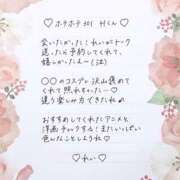 ♡ ホテホテ 201 Hくん ♡
会いたかった！くれいがトーク
送ったら予約してくれて、
嬉しかったんー（泣）
○○のコスプレ 沢山褒めて
くれて照れちった…♡
違う楽しみ方できたね♪
おすすめしてくれたアニメと
漫画チェックする！またいっぱい
色んなことしよう それ
♡ れい ♡